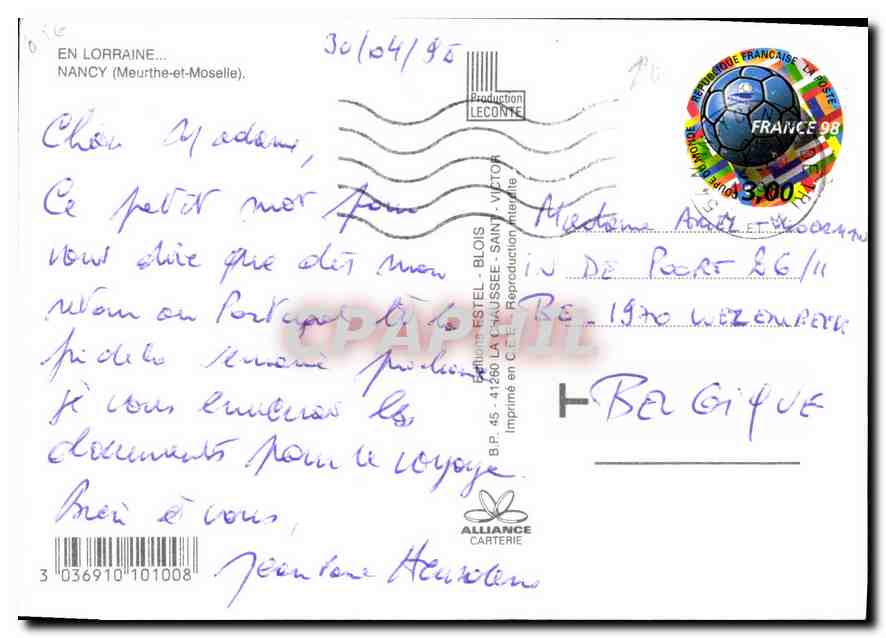 EN LORRAINE...
NANCY (Meurthe-et-Moselle).
30/04/98
Production
LECONTE
RÉPUBLIQUE FRANÇAISE LA POSTE
COUPE DU MONDE
FRANCE 98
3,00
Chère Madame,
Ce petit mot pour
vous dire que dès mon
retour au Portugal le
fin de la semaine prochaine
je vous enverrai les
documents pour le voyage.
Bien à vous,
Editions ESTEL - BLOIS
B.P. 45 - 41260 LA CHAUSSÉE - SAINT - VICTOR
Imprimé en C.E.E. - Reproduction interdite
Madame
IN DE POORT 26/11
BE-1970 WEZEMBEEK
BELGIQUE
CPAPHIL
ALLIANCE
CARTERIE
3 036910 101008